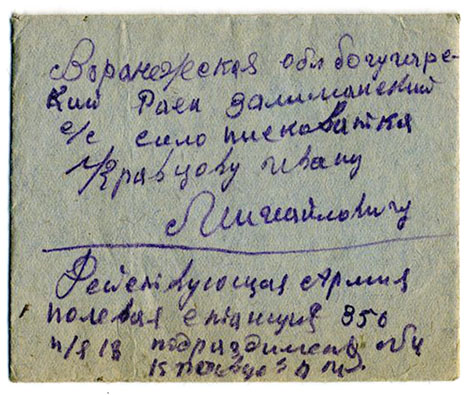 Варанежская обл богучаре-
кий Раён залиманский
с/с сило писковатка
Кравцову ивану
Михайловичу
Действующая Армия
полевая станция 356
п/я 18